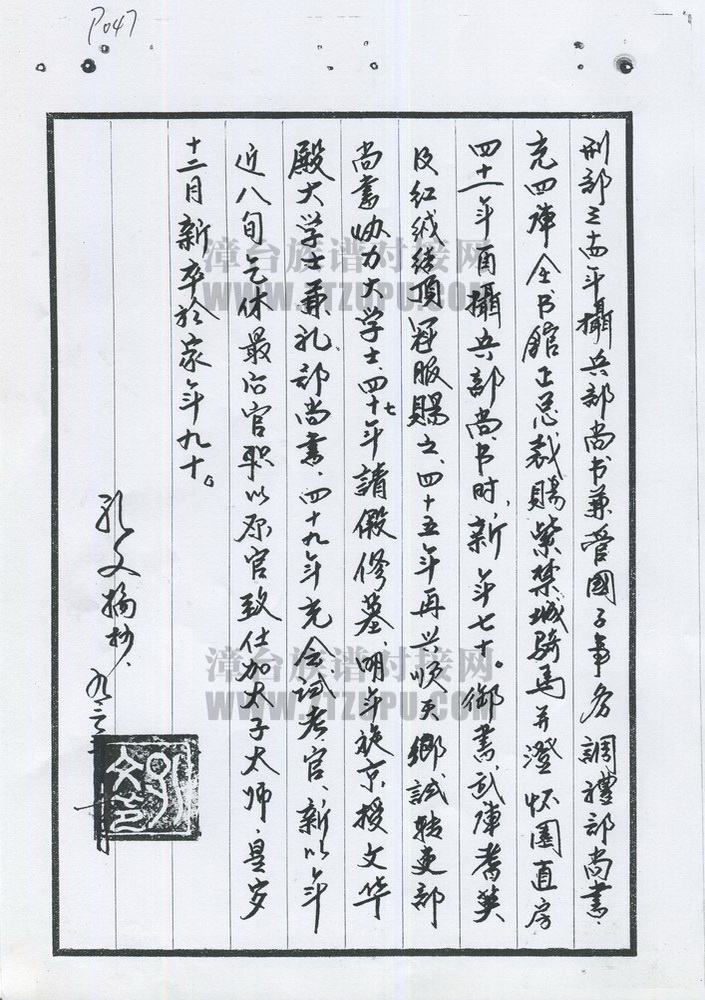 P047
刑部三十四年攝兵部尚书兼管國子事务調禮部尚書
充四庫全书館正总裁賜紫禁城騎馬并澄怀園直房
四十一年再攝兵部尚书时，新年七十。御書武庫耆英
及红绒结頂冠服賜之、四十五年再兴顺天鄉試转吏部
尚書协力大学士、四十七年請假修墓、明年旋京授文华
殿大学士兼礼部尚書、四十九年充会試考官、新以年
近八旬乞休最后官职以原官致仕加太子太师、是岁
十二月新卒於家年九十。
孔文摘抄、九三年
漳台族谱对接网
WWW.ZTZUPU.COM
漳台族谱对接网
WWW.ZTZUPU.COM